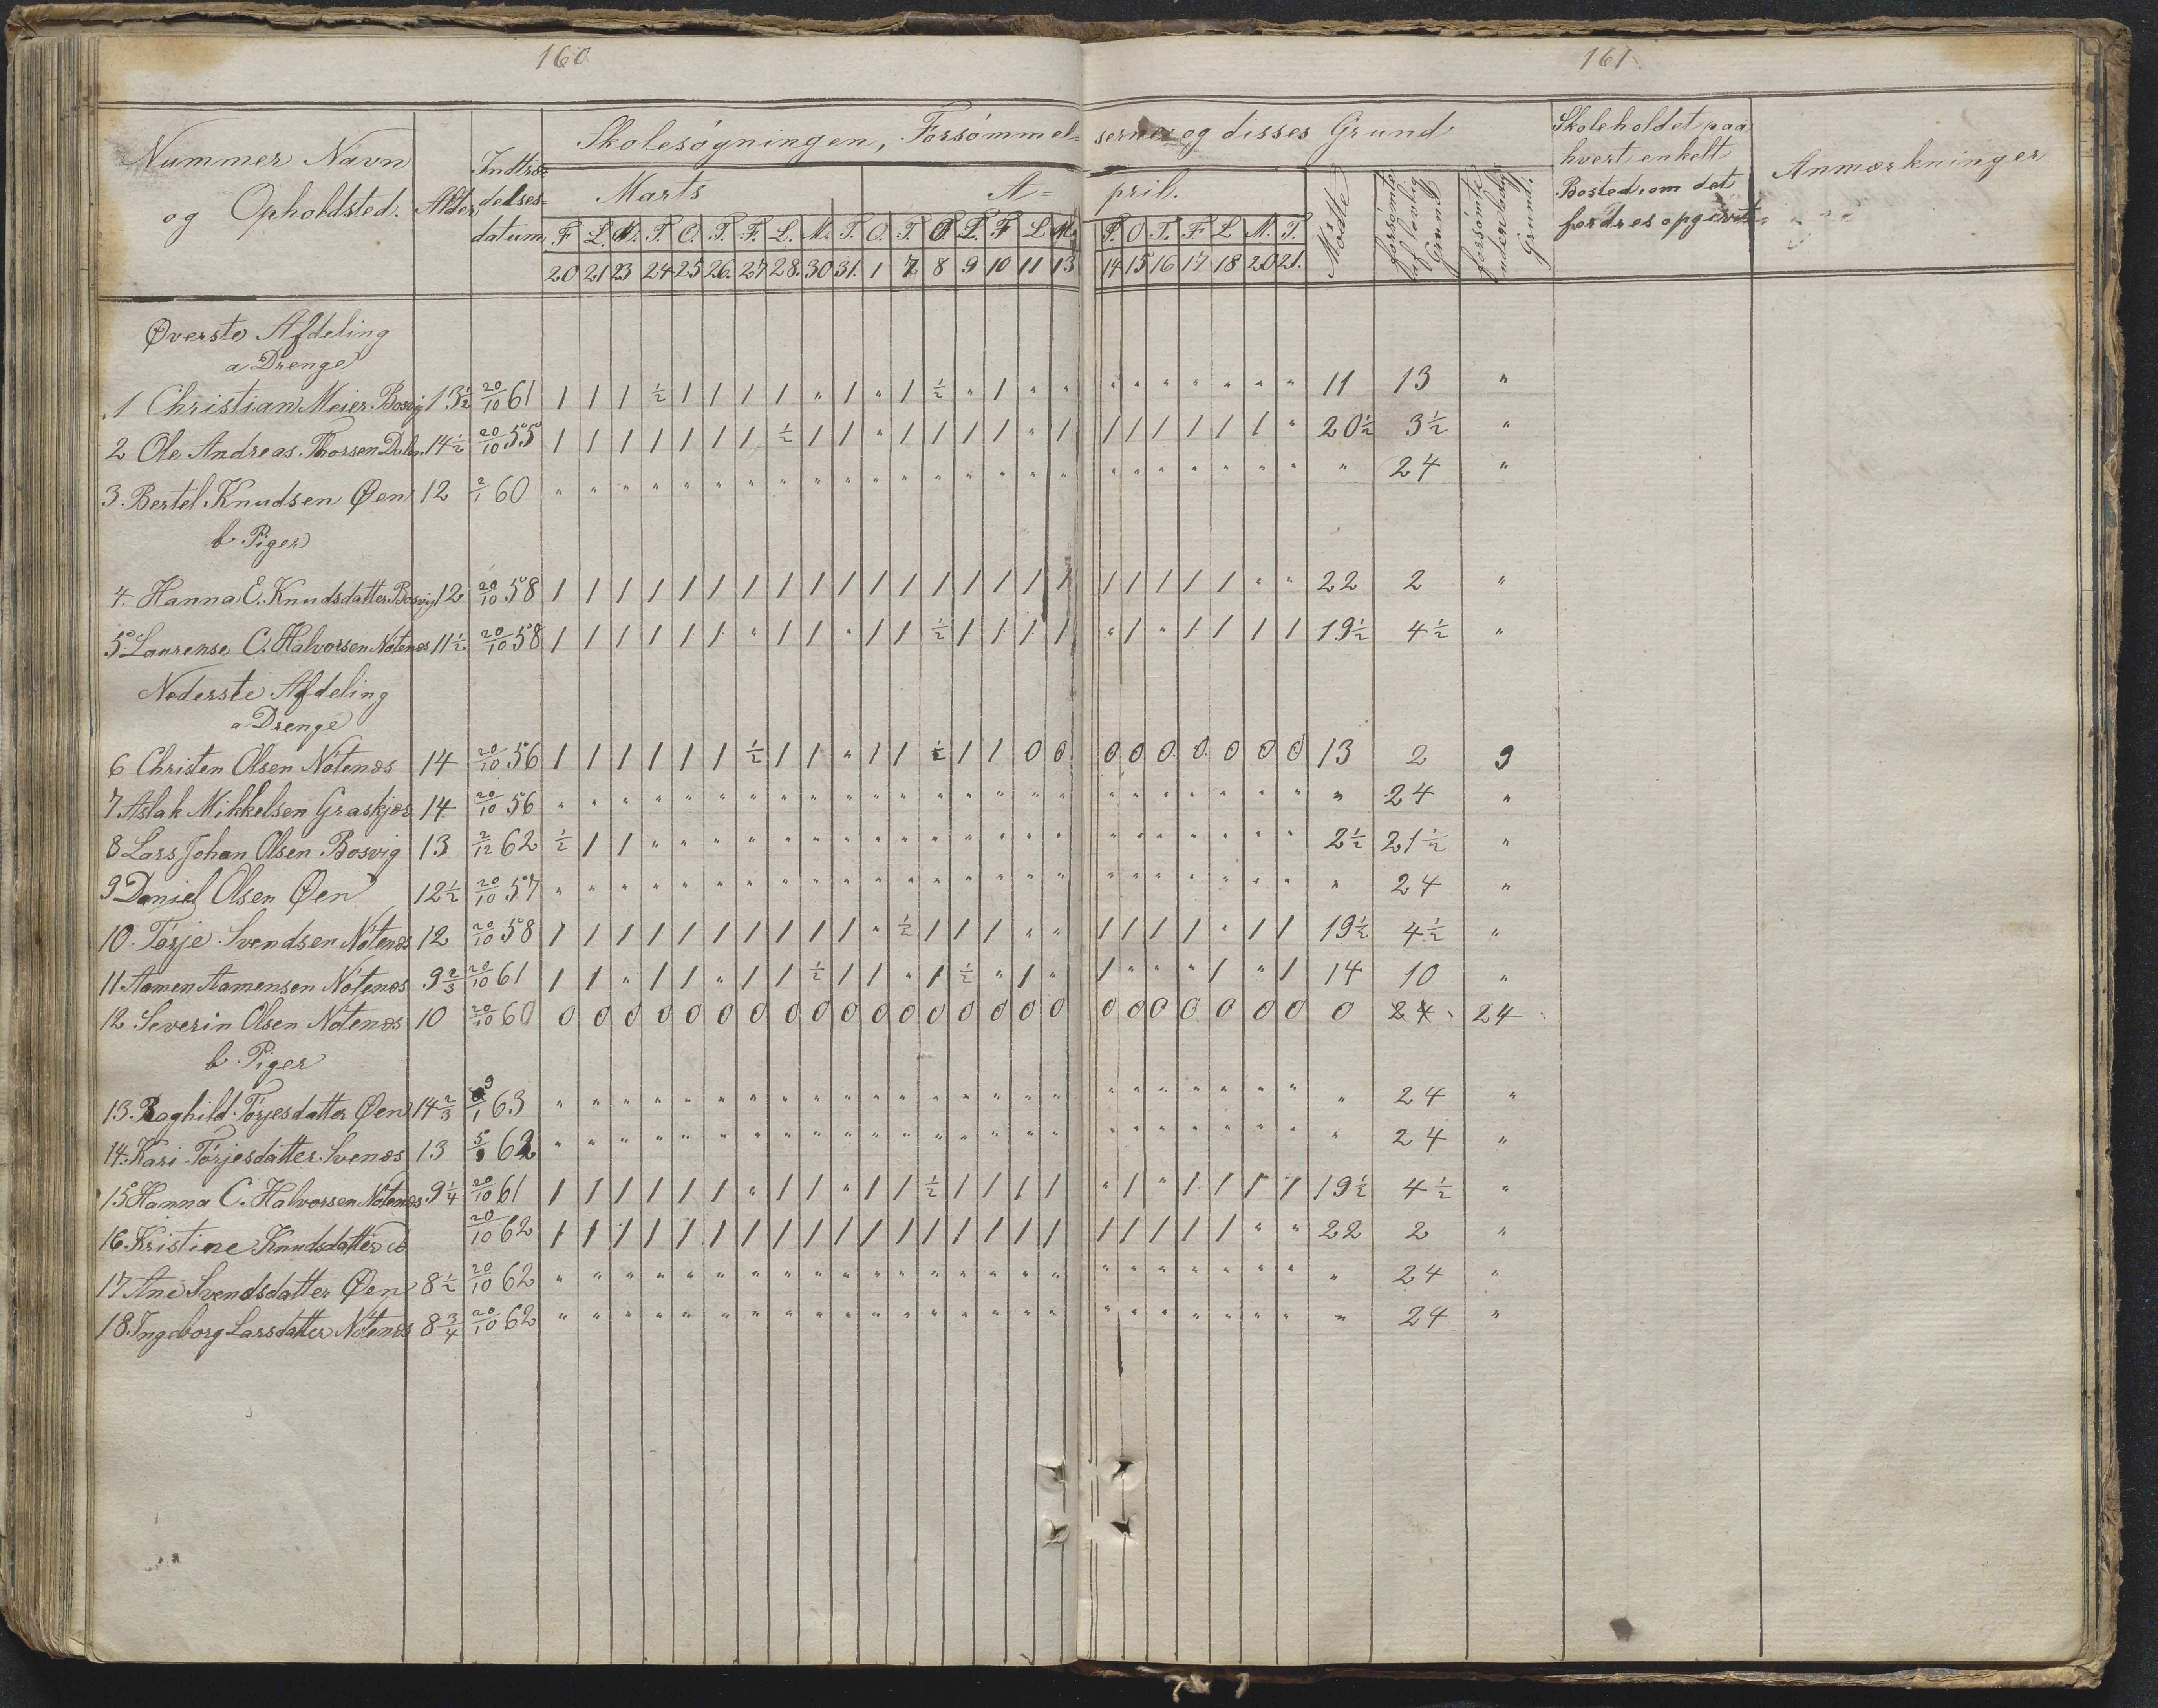 160
161
Nummer Navn
og Opholdsted.
Alder
Indtræ-
delses-
datum
Skolesøgningen, Forsømmel- serne og disses Grund
Marts A- pril.
F L. M. T. O. T. F. L. M. T. O. T. O T. F L M. T. O T. F L M. T.
20 21 23 24 25 26. 27 28. 30 31. 1 7 8 9 10 11 13 14 15 16 17 18 20 21.
Mødte
forsømte
af lovlig
Grund
forsømte
uden lovlig
Grund.
Skoleholdet paa
hvert enkelt
Bosted, om det
fordres opgivet
Anmærkninger
Øverste Afdeling
a Drenge
1 Christian Meier Bosvig 13½ 20/10 61 1 1 1 ½ 1 1 1 1 " 1 " 1 ½ " 1 " " " " " " " " " 11 13 "
2 Ole Andreas Thorsen Dalen 14½ 20/10 55 1 1 1 1 1 1 1 ½ 1 1 " 1 1 1 1 " 1 1 1 1 1 1 1 " 20½ 3½ "
3. Bertel Knudsen Øen 12 2/1 60 " " " " " " " " " " " " " " " " " " " " " " " " " 24 "
b. Piger
4. Hanna E. Knudsdatter Bosvig 12 20/10 58 1 1 1 1 1 1 1 1 1 1 1 1 1 1 1 1 1 1 1 1 1 1 " " 22 2 "
5. Laurense C. Halvorsen Notenæs 11½ 20/10 58 1 1 1 1 1 1 " 1 1 " 1 1 ½ 1 1 1 1 " 1 " 1 1 1 1 19½ 4½ "
Nederste Afdeling
a Drenge
6 Christen Olsen Notenæs 14 20/10 56 1 1 1 1 1 1 ½ 1 1 " 1 1 ½ 1 1 0 0 0 0 0 0 0 0 0 13 2 9
7 Aslak Mikkelsen Graskjær 14 20/10 56 " " " " " " " " " " " " " " " " " " " " " " " " " 24 "
8 Lars Johan Olsen Bosvig 13 2/12 62 ½ 1 1 " " " " " " " " " " " " " " " " " " " " " 2½ 21½ "
9 Daniel Olsen Øen 12½ 20/10 57 " " " " " " " " " " " " " " " " " " " " " " " " " 24 "
10. Tørje Svendsen Notenæs 12 20/10 58 1 1 1 1 1 1 1 1 1 1 " ½ 1 1 1 " " 1 1 1 1 " 1 1 19½ 4½ "
11 Aamen Aamensen Notenæs 9⅔ 20/10 61 1 1 " 1 1 " 1 1 ½ 1 1 " 1 ½ " 1 " 1 " " " 1 " 1 14 10 "
12 Severin Olsen Notenæs 10 20/10 60 0 0 0 0 0 0 0 0 0 0 0 0 0 0 0 0 0 0 0 0 0 0 0 0 0 24 24
b. Piger
13. Raghild Tørjesdatter Øen 14⅔ 9/1 63 " " " " " " " " " " " " " " " " " " " " " " " " " 24 "
14. Kari Tørjesdatter Svenæs 13 5/9 62 " " " " " " " " " " " " " " " " " " " " " " " " " 24 "
15 Hanna C. Halvorsen Notenæs 9¼ 20/10 61 1 1 1 1 1 1 " 1 1 " 1 1 ½ 1 1 1 1 " 1 " 1 1 1 1 19½ 4½ "
16. Kristine Knudsdatter 20/10 62 1 1 1 1 1 1 1 1 1 1 1 1 1 1 1 1 1 1 1 1 1 1 " " 22 2 "
17 Ane Svendsdatter Øen 8½ 20/10 62 " " " " " " " " " " " " " " " " " " " " " " " " " 24 "
18. Ingeborg Larsdatter Notenæs 8¾ 20/10 62 " " " " " " " " " " " " " " " " " " " " " " " " " 24 "